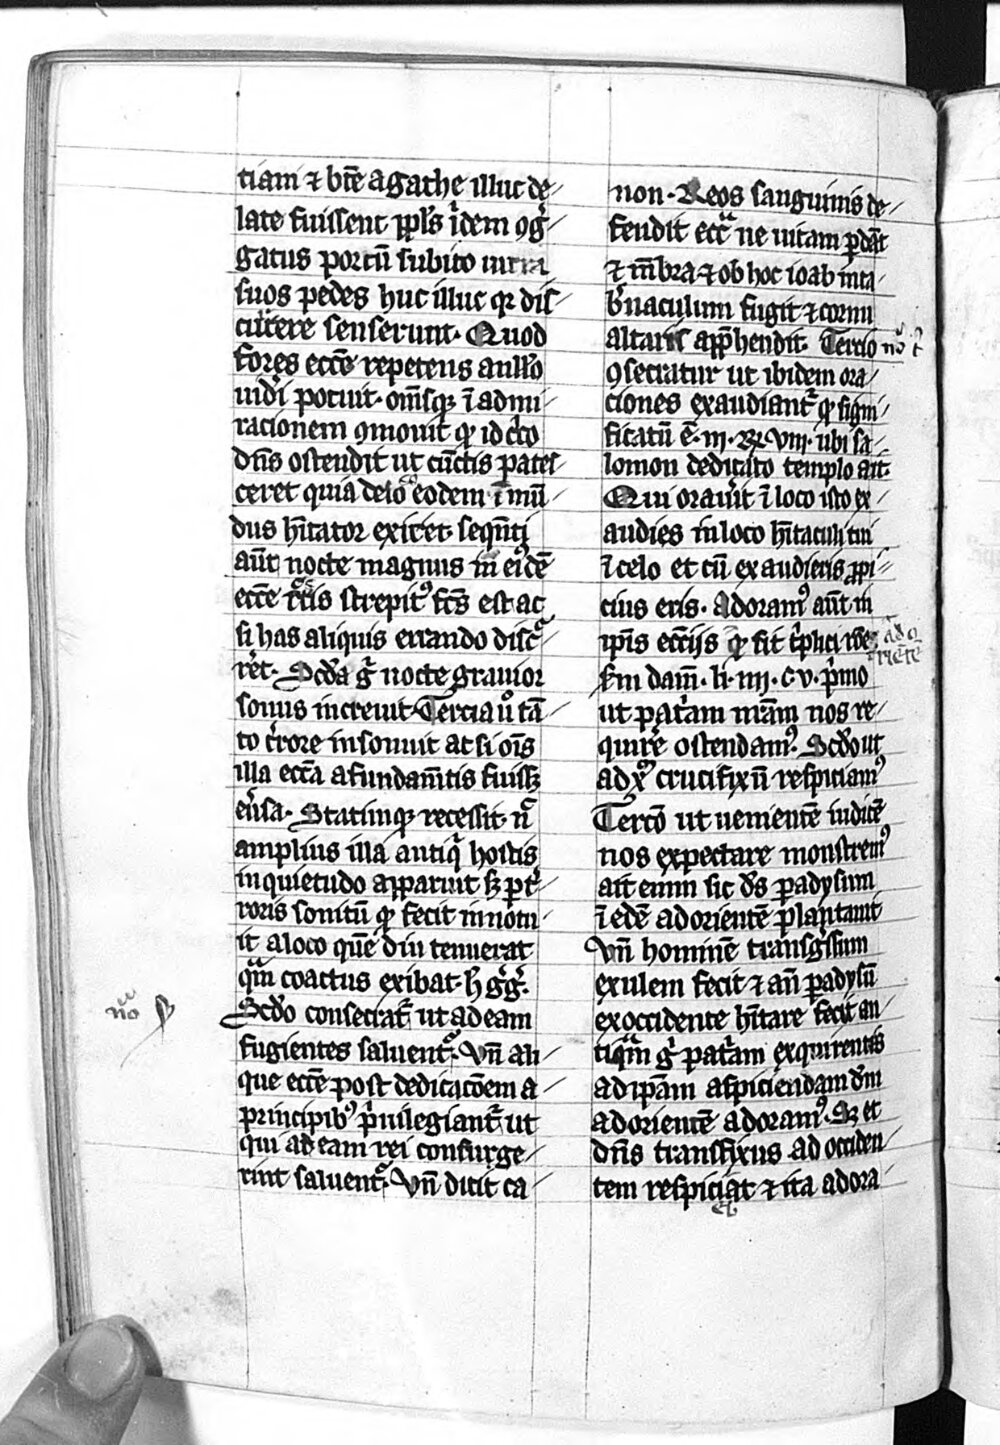 tiam ⁊ btē agathe illuc de
late fuissent ppl̄s ibidem ꝯgͥ
gatus porcū subito intra
suos pedes huc illuc qꝫ dis
currere senserunt. Quod
fores eccē repetens a nullo
uideri potuit. om̄sqꝫ ī admi
racionem ꝯmouit qꝫ id cͥcō
dn̄s ostendit ut cūctis pates
ceret quia de loco eodem īmū
dus hītator exiret. seqn̄ti
aūt nocte magnus in eiꝰdē
eccē tectis strepitꝰ fcs̄ est ac
si has aliquis errando discͬ
ret. Scd̄a gͦ nocte grauior
sonus increuit. Tercia uͦ tā
to tͬrore insonuit ac si oīs
illa eccͣ a fundam̄tis fuissꝫ
eūsa. Statimqꝫ recessit n̄
amplius illa antiqͥ hostis
inquietudo apparuit sꝫ pͬ tͬ
roris sonitū qꝫ fecit innotu
it a loco quē diu tenuerat
qm̄ coactus exibat. h gͬgͬ.
Scd̄o consecratͬ ut ad eam
fugientes saluentͬ. Vn̄ ali
que eccē post dedicacōem a
principibꝰ pͥuilegiantͬ ut
qui ad eam rei confuge
rint saluentͬ. Vn̄ dicit ca
non. Reos sanguinis de
fendit eccͣ ne uitam ꝑdāt
⁊ mb̄ra ⁊ ob hoc ioab in ta
bn̄aculum fugit ⁊ cornu
altaris app̄hendit. Tercio
ꝯsecratur ut ibidem ora
ciones exaudiantͬ qꝫ signi
ficatū ē. iii. Rͬ viii. ubi sa
lomon dedicato templo ait.
Qui orauīt ī loco isto ex
audies in loco hītaculi tui
ī celo et cū exaudieris ꝓpi
cius eris. Adoramꝰ aūt in
ipīs ecc̄ijs qꝫ fit tͥplici rōe
sm̄ dam̄. li. iiii. c. v. pͥmo
ut patͥam nr̄am nos re
quirere ostendamꝰ. Scd̄o ut
ad xꝰ crucifixū respiciamꝰ
Terc̄o ut uenientē iudicē
nos expectare monstremꝰ
ait enim sic ds̄ padysum
ī edē ad orientē plantauit
Vn̄ hominē transgͥssum
exulem fecit ⁊ an̄ padysū
ex occidente hītare fecit an
tiqͣm gͦ patͥam exquirentes
ad ip̄am aspiciendam dm̄
ad orientē adoramꝰ. Sꝫ et
dn̄s transfixus ad occiden
tem respiciebat ⁊ ita adora